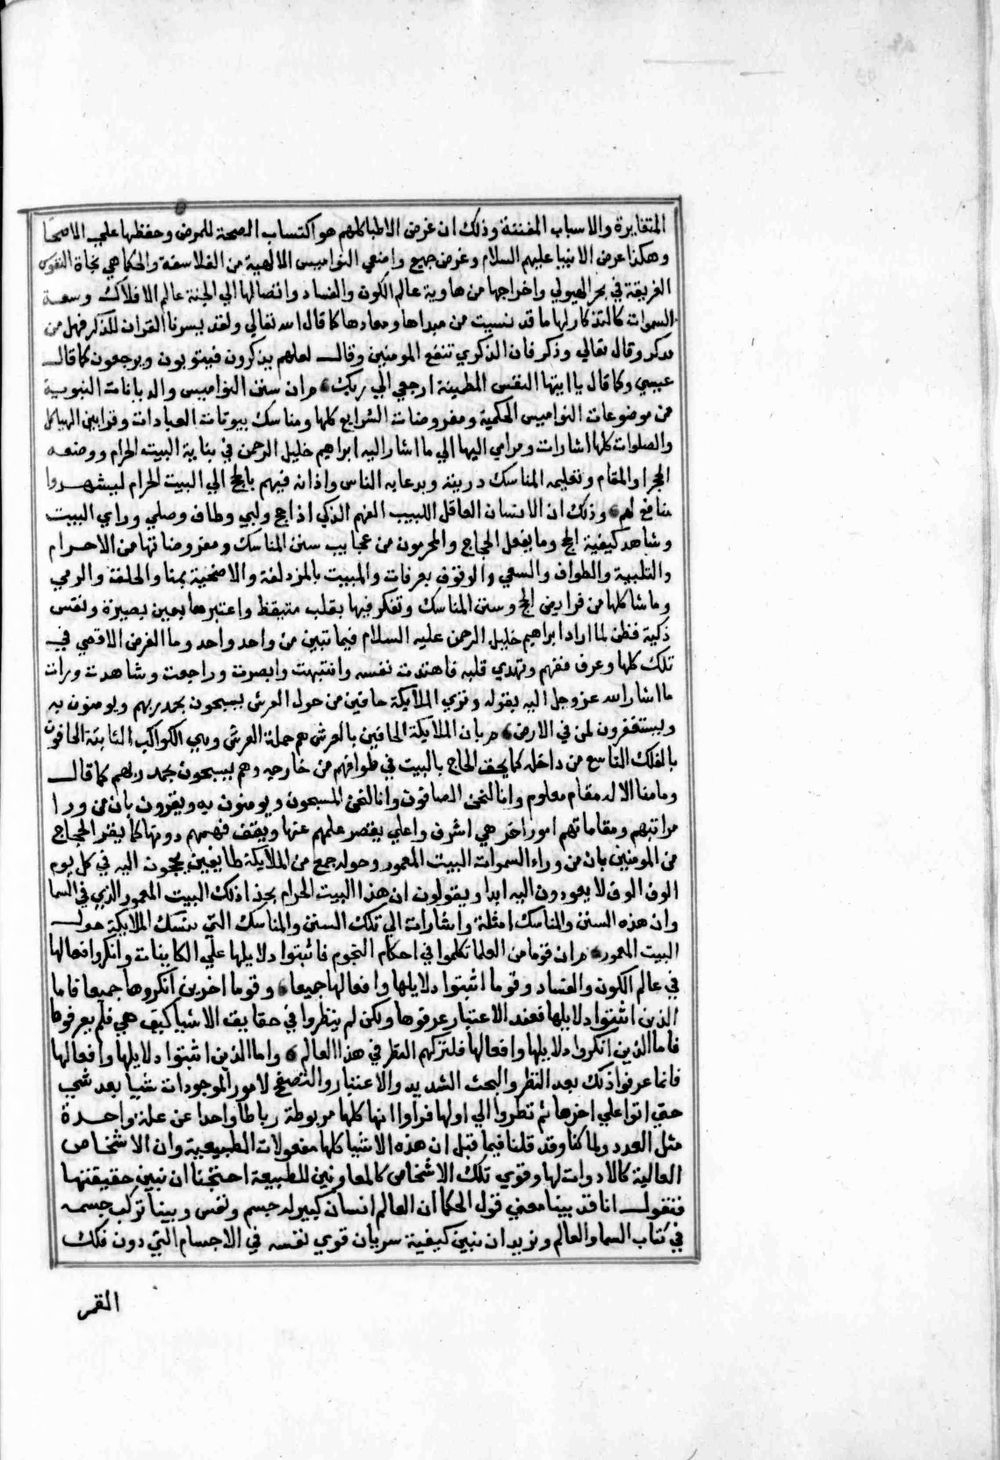 المتغايرة والاسباب المفننة وذلك ان غرض الاطبا كلهم هو اكتساب الصحة للمرضى وحفظها على الاصحا
وهكذا غرض الانبيا عليهم السلام وغرض جميع واضعي النواميس الالهية من الفلاسفة والحكما هي نجاة النفوس
الغريقة في بحر الهيولي واخراجها من هاوية عالم الكون والفساد وايصالها الي الجنة عالم الافلاك وسعة
السموات كالتذكار لها ما قد نسيت من مبداها ومعادها كما قال الله تعالي ولقد يسرنا القران للذكر فهل من
مدكر وقال تعالي وذكر فان الذكري تنفع المومنين وقال لعلهم يذكرون فيتوبون ويرجعون كما قال
عيسي وكما قال يا ايتها النفس المطمينة ارجعي الي ربك ثم ان سنن النواميس والديانات النبوية
من موضوعات النواميس الحكمية ومفروضات الشرايع كلها ومناسك بيوتات العبادات وقرابين الهياكل
والصلوات كلها اشارات ومرامي اليها الي ما اشار اليه ابراهيم خليل الرحمن في بناية البيت الحرام ووضعه
الحجر والمقام وتعليمه المناسك ذريته وبدعايه الناس واذانه فيهم بالحج الي البيت الحرام ليشهدوا
منافع لهم وذلك ان الانسان العاقل اللبيب الفهم الذكي اذا حج ولبي وطاف وصلي وراي البيت
وشاهد كيفية الحج وما يفعل الحجاج والمحرمون من عجايب سنن المناسك ومفروضاتها من الاحرام
والتلبية والطواف والسعي والوقوف بعرفات والمبيت بالمزدلفة والاضحية بمنا والحلقة والرمي
وما شاكلها من فرايض الحج وسنن المناسك وتفكر فيها بقلب متيقظ واعتبرها بعين بصيرة ونفس
ذكية فطن لما اراد ابراهيم خليل الرحمن عليه السلام فيما تبين من واحد واحد وما الغرض الاقصي في
تلك كلها وعرف ففهم وتهدي قلبه فاهتدت نفسه وانتبهت وابصرت وراجعت وشاهدت ورات
ما اشار الله عز وجل اليه بقوله وتري الملايكة حافين من حول العرش يسبحون بحمد ربهم ويومنون به
ويستغفرون لمن في الارض ثم بان الملايكة الحافين بالعرش هم حملة العرش وهي الكواكب الثابتة الحافون
بالفلك التاسع من داخله كما يحف الحاج بالبيت في طوافهم من خارجه وهم يسبحون بحمد ربهم كما قال
وما منا الا له مقام معلوم وانا لنحن الصافون وانا لنحن المسبحون ويومنون به ويقرون بان من ورا
مراتبهم ومقاماتهم امور اخر هي اشرف واعلي يقصر علمهم عنها ويقف فهمهم دونها كما يقر الحجاج
من المومنين بان من وراء السموات البيت المعمور وحوله جمع من الملايكة طايفين يحجون اليه في كل يوم
الوف الوف لا يعودون اليه ابدا ويقولون ان هذا البيت الحرام بحذا ذلك البيت المعمور الذي في السما
وان هذه السنن والمناسك امثلة واشارات الي تلك السنن والمناسك التي يتنسك الملايكة حول
البيت المعمور ثم ان قوما من العلما تكلموا في احكام النجوم فاثبتوا دلايلها علي الكاينات وانكروا افعالها
في عالم الكون والفساد وقوما اثبتوا دلايلها وافعالها جميعا وقوما اخرين انكروها جميعا فاما
الذين اثبتوا دلايلها فعند الاعتبار عرفوها ولكن لم ينظروا في حقايق الاشيا كيف هي فلم يعرفوها
فاما الذين انكروا دلايلها وافعالها فلتركهم النظر في هذا العالم واما الذين اثبتوا دلايلها وافعالها
فانما عرفوا ذلك بعد النظر والبحث الشديد والاعتبار والتصفح لامور الموجودات شيا بعد شي
حتي اتوا علي اخرها ثم نظروا الي اولها فراوا انها كلها مربوطة رباطا واحدا عن علة واحدة
مثل العدد ولما كنا وقد قلنا فيما قبل ان هذه الاشيا كلها مفعولات الطبيعية وان الاشخاص
العالية كالادوات لها وقوي تلك الاشخاص كالمعاونين للطبيعة احتجنا ان نبين حقيقتها
فنقول انا قد بينا معني قول الحكما ان العالم انسان كبير له جسم ونفس وبينا تركب جسمه
في كتاب السما والعالم ونريد ان نبين كيفية سريان قوي نفسه في الاجسام التي دون فلك
القمر